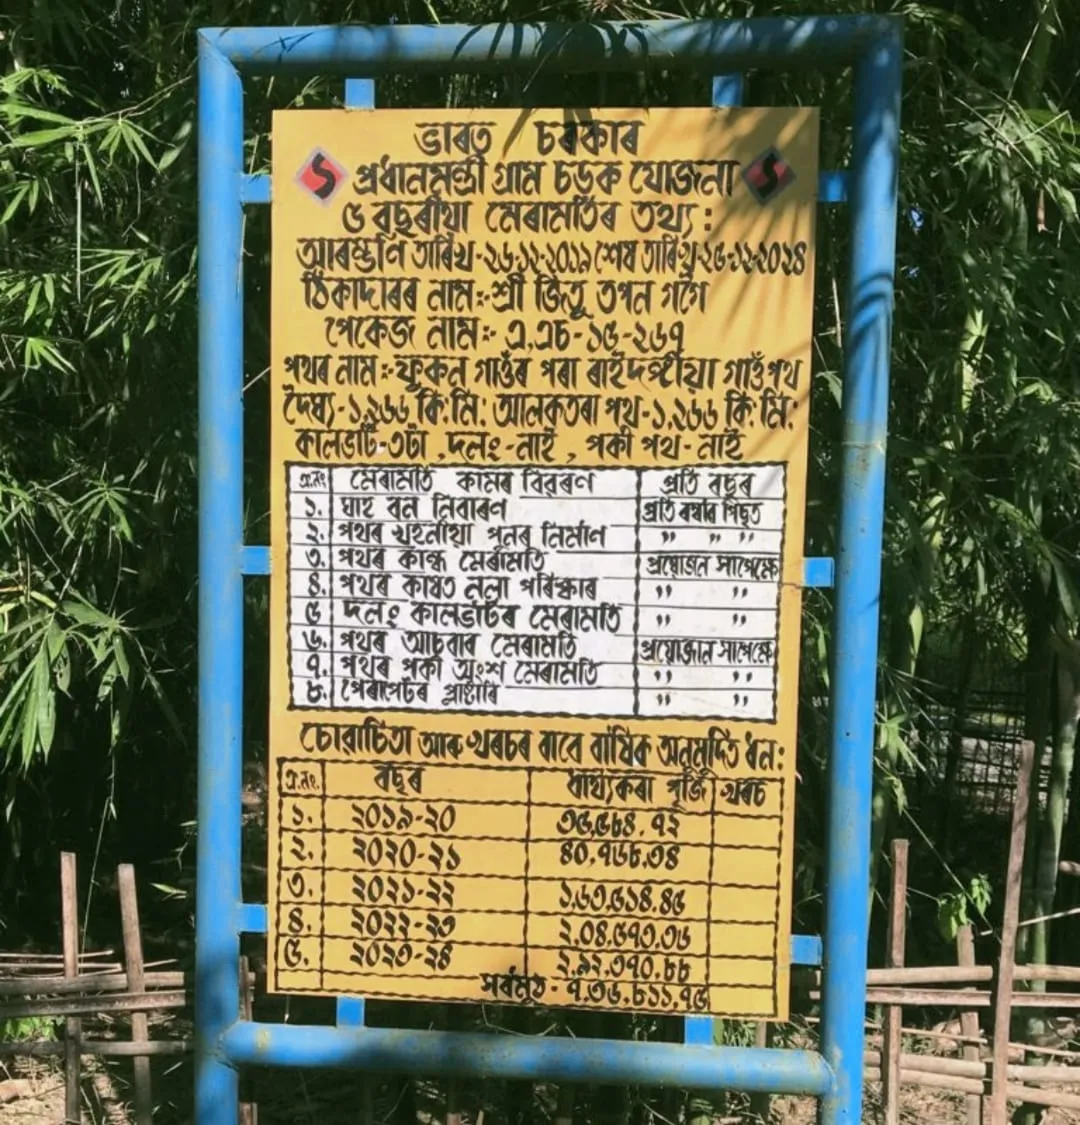 ভাৰত চৰকাৰ
প্ৰধানমন্ত্ৰী গ্ৰাম চড়ক যোজনা
৫ বছৰীয়া মেৰামতিৰ তথ্য :
আৰম্ভণি তাৰিখ-২৬-১২-২০১৯ শেষ তাৰিখ-২৫-১২-২০২৪
ঠিকাদাৰৰ নাম:-শ্ৰী জিতু তপন গগৈ
পেকেজ নাম:- এ.এচ-১৫-২৬৭
পথৰ নাম:-ফুকন গাওঁৰ পৰা ৰাইদঙ্গীয়া গাওঁ পথ
দৈৰ্ঘ্য-১.২৬৬ কি:মি: আলকতৰা পথ-১.২৬৬ কি:মি:
কালভাৰ্ট-৩টা ,দলং-নাই , পকী পথ- নাই
ক্ৰ.নং মেৰামতি কামৰ বিৱৰণ প্ৰতি বছৰ
১. ঘাহ বন নিবাৰণ প্ৰতি বৰ্ষাৰ পিছত
২. পথৰ খহনীয়া পুনৰ নিৰ্মাণ " " "
৩. পথৰ কান্ধ মেৰামতি প্ৰয়োজন সাপেক্ষে
৪. পথৰ কাষত নলা পৰিষ্কাৰ " "
৫ দলং কালভাৰ্টৰ মেৰামতি " "
৬. পথৰ আচবাৰ মেৰামতি প্ৰয়োজন সাপেক্ষে
৭. পথৰ পকী অংশ মেৰামতি " "
৮. পেৰাপেটৰ প্লাষ্টাৰি " "
চোৱাচিতা আৰু খৰচৰ বাবে বাৰ্ষিক অনুমদিত ধন:
ক্ৰ.নং. বছৰ ধাৰ্য্যকৰা পূজি খৰচ
১. ২০১৯-২০ ৩৫,৫৮৪.৭২
২. ২০২০-২১ ৪০,৭৬৮.৩৪
৩. ২০২১-২২ ১,৬৩,৫১৪.৪৫
৪. ২০২২-২৩ ২,০৪,৫৭৩.৩৬
৫. ২০২৩-২৪ ২,৯২,৩৭০.৮৮
সৰ্বমুঠ - ৭,৩৬,৮১১.৭৫